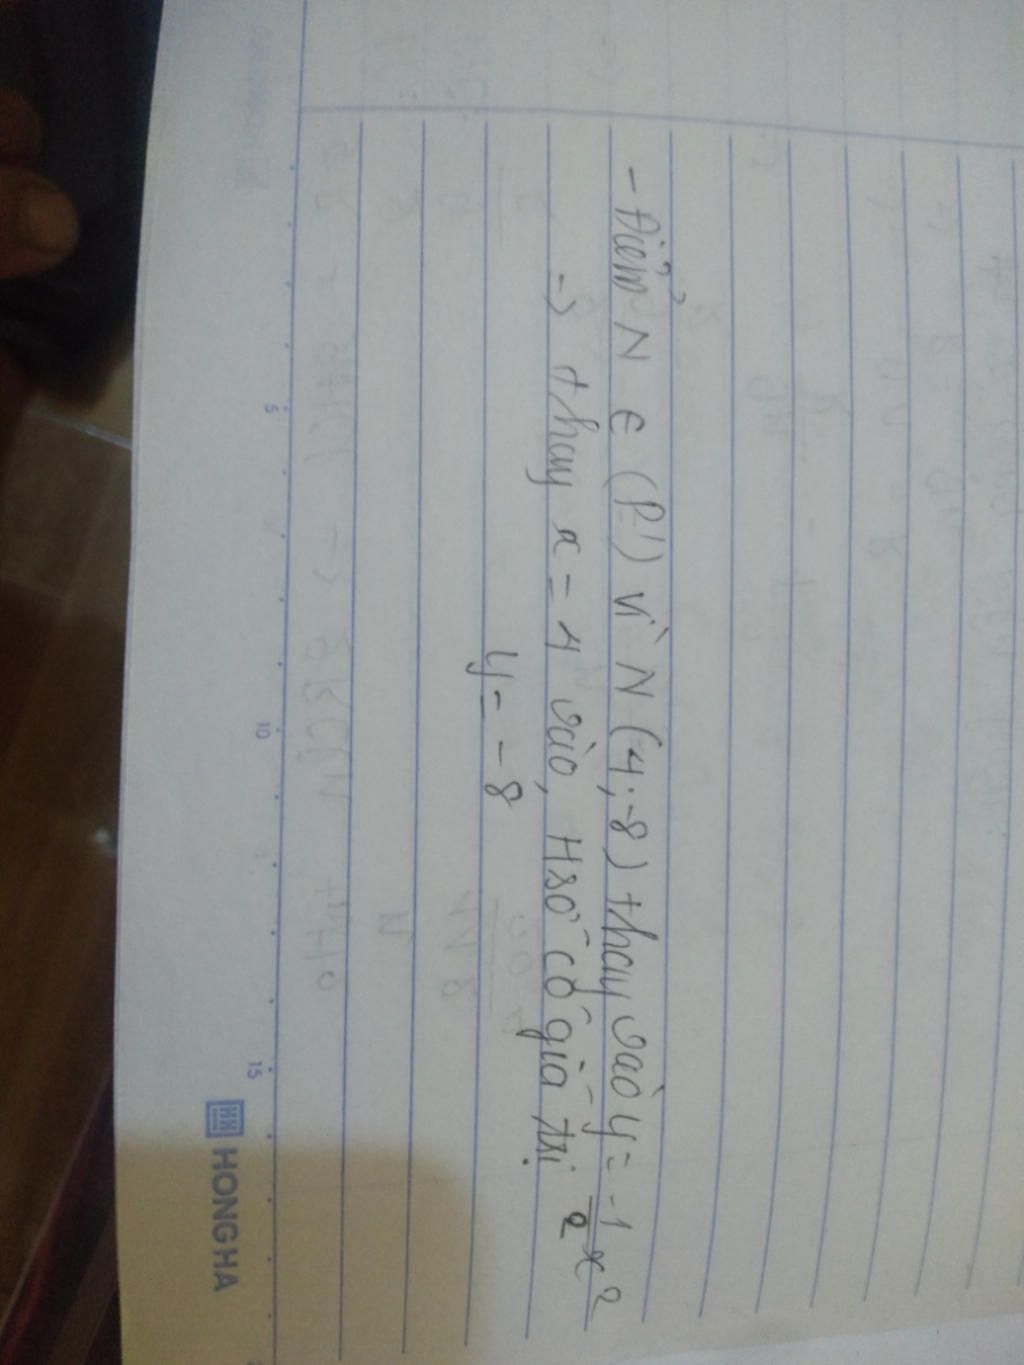 - Điểm N ∈ (P') vì N (4; -8) thay vào y = -1/2 x²
-> thay x = 4 vào, Hsố có giá trị
y = - 8
5
10
15
HONG HA